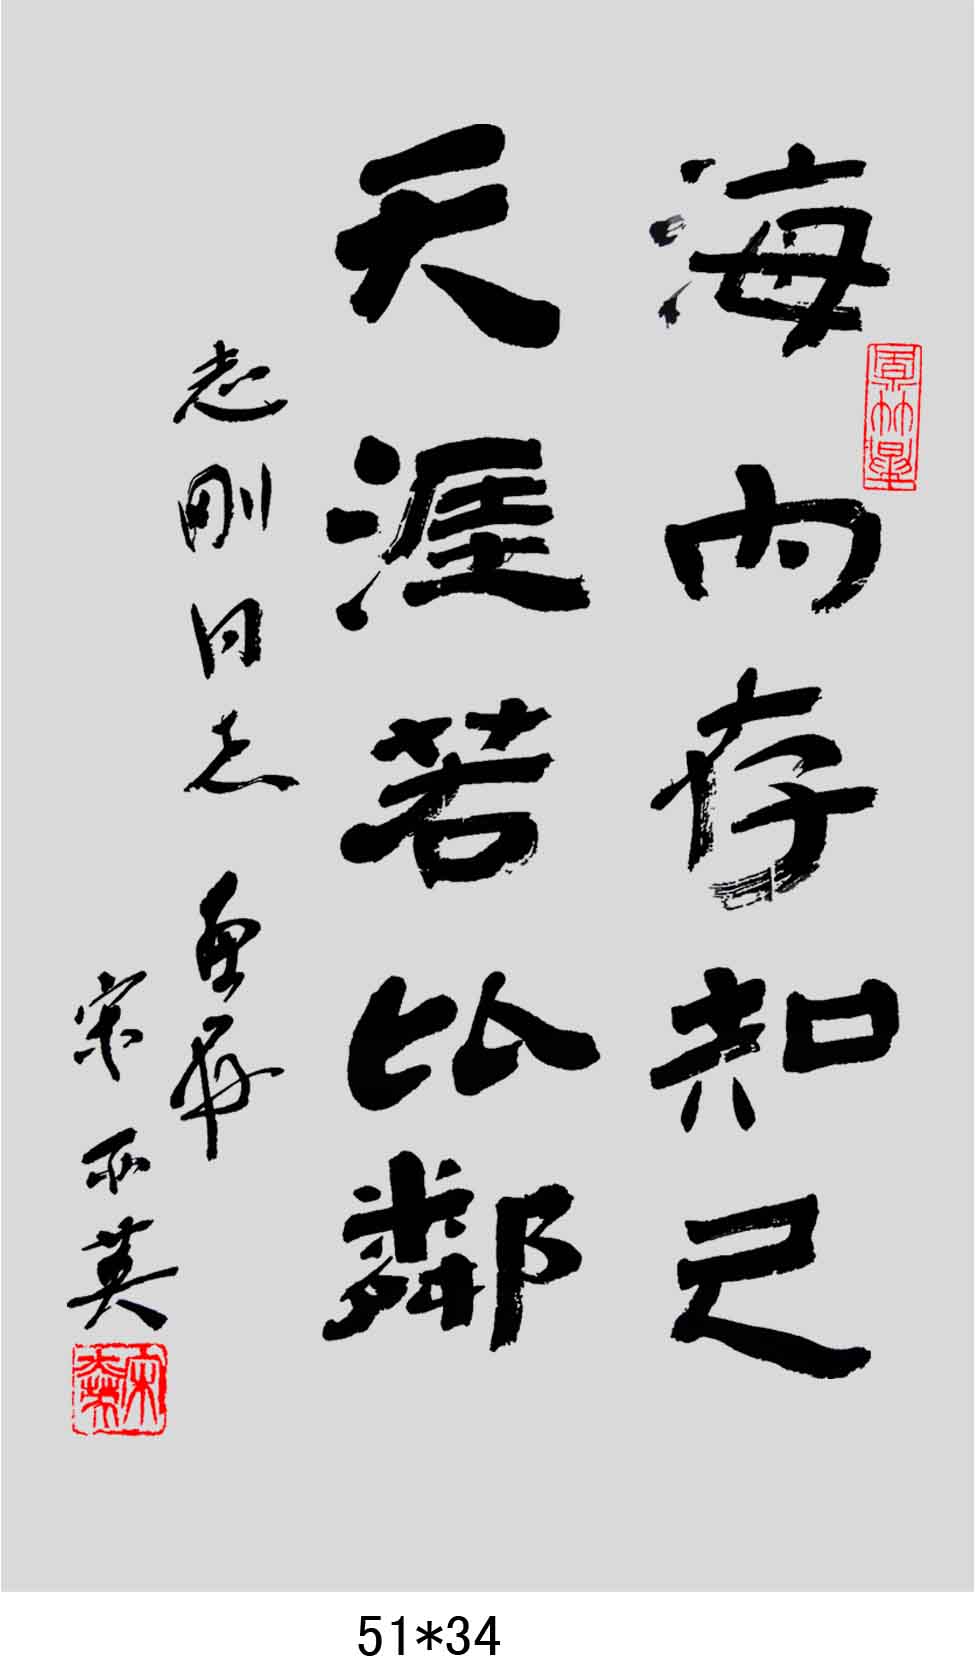 海内存知己
天涯若比鄰
志剛同志
宋 英
51*34